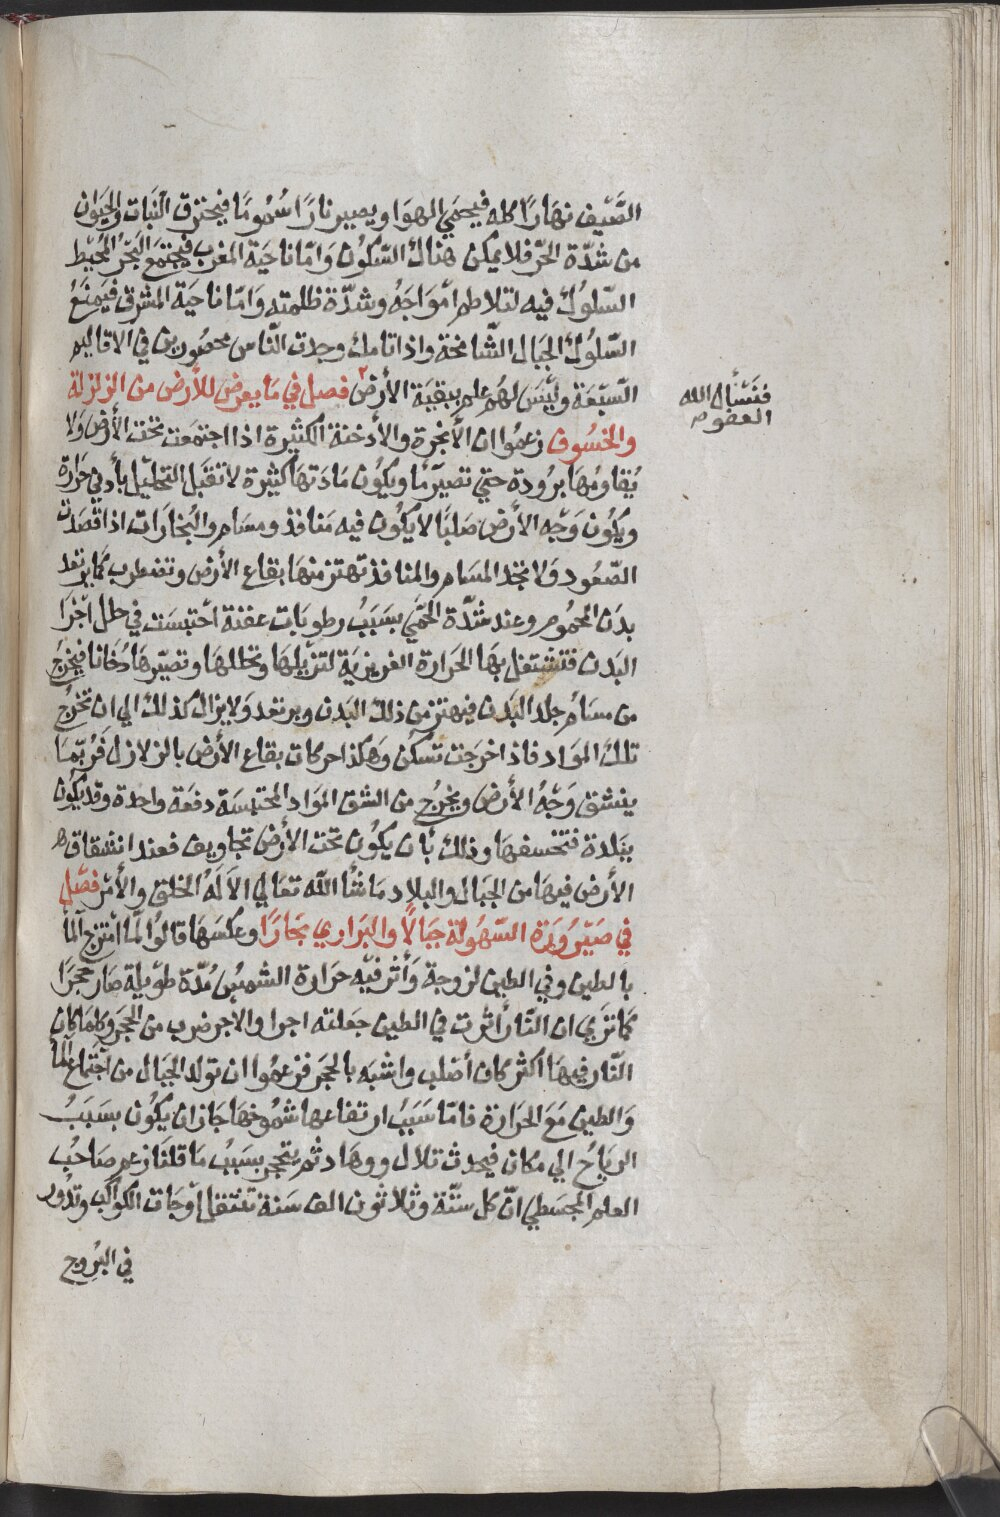 الصَّيف نهارًا كله فيحمي الهوا ويصير نارًا سُمُومًا فيحترق النبات والحيَوان
من شدّة الحرّ فلا يمكن هناك السّكُون وَامّا ناحيَة المغرب فيمنع البَحرُ المُحيط
السّلوُك فيه لتلاطم امْوَاجَهُ وشدّة ظلمته وَامّا ناحيَة المشرق فيَمنعُ
السّلوُك الجبَال الشّامخة واذا تامك وجدت النّاس محصُورين في الاقاليم
السّبْعَة وليْسَ لهُم علم ببقيَة الأرض ٢ فصل في مَا يعرض للأرض من الزلزلة
والخسُوف زعمُوا ان الأبخرة والأدخنة الكثيرة اذا اجتمَعت تحت الأرض وَلا
يُقاومُهَا برُودة حتي تصيرّ مَا ويكوُن مَادتهَا كثيرة لا تقبَل التحليْل بأدني حَرارة
ويكُون وَجْه الأرض صَلبًا لا يكُون فيه مَنافذ ومسَام والبُخارَات اذا قصَدت
الصّعُود وَلا تجَد المسَام والمنافذ تهتز منهَا بقاع الأرض وتضطرب كمَا يرتعد
بدَن المحمُوم وعند شدّة الحمّي بسَبَبُ رطوبَات عفنة احْتبسَت في خلل اجْزا
البَدن فتشتغل بهَا الحَرارة الغريزيَة لتزيلهَا وتحللهَا وتصيّرهَا دُخانا فيخرجُ
من مسَام جلد البَدن فيهتز من ذلك البَدن ويرتعد وَلا يزال كذلك الي ان تخرُج
تلك المَوَاد فاذا خرَجَت تسكن وَهكذا حركات بقاع الأرض بالزلازل فَرُبّمَا
ينشق وَجْهُ الأرض ويخرُج من الشق الموَاد المحتبسَة دفعَة واحدة وقد يكُون
ببَلدة فتخسفهَا وذلك بأن يكوُن تحت الأرض تجاويف فعند انشقاق
الأرض فيهَا من الجبَال والبلاد مَا شا الله تعَالي الاَ لَهُ الخلق والأمْر فصْل
في صَيْرُورَة السّهُولة جبَالًا والبَراري بحَارًا وعكسَهَا قالوُا لمّا امتزج المَا
بالطين وفي الطين لزوجة وَأثر فيْه حرَارة الشمسْ مُدّة طوّيلة صَار حَجرًا
كما ترَي ان النّار أثرت في الطين جعَلته اجرا والاجر ضرب من الحجَر وكلمَا كان
النّار فيهَا أكثر كان أصْلب واشبَه بالحجَر فزعمُوا ان تولد الجبَال من اجتماع المَا
وَالطين مَعَ الحَرارة فامّا سَبَبُ ارتفاعها شمُوخهَا جَاز ان يكُون بسَبَبُ
الريَاحُ الي مكان فيحدث تلال ووهَاد ثم يتحجر بسَببُ مَا قلنَا زعم صَاحبُ
العلم المجسَطي انّ كل ستّة وثلاثون الف سَنة تنتقل اوْجَات الكواكب وتدُور
في البُروج
فنسْأل الله
العفو م